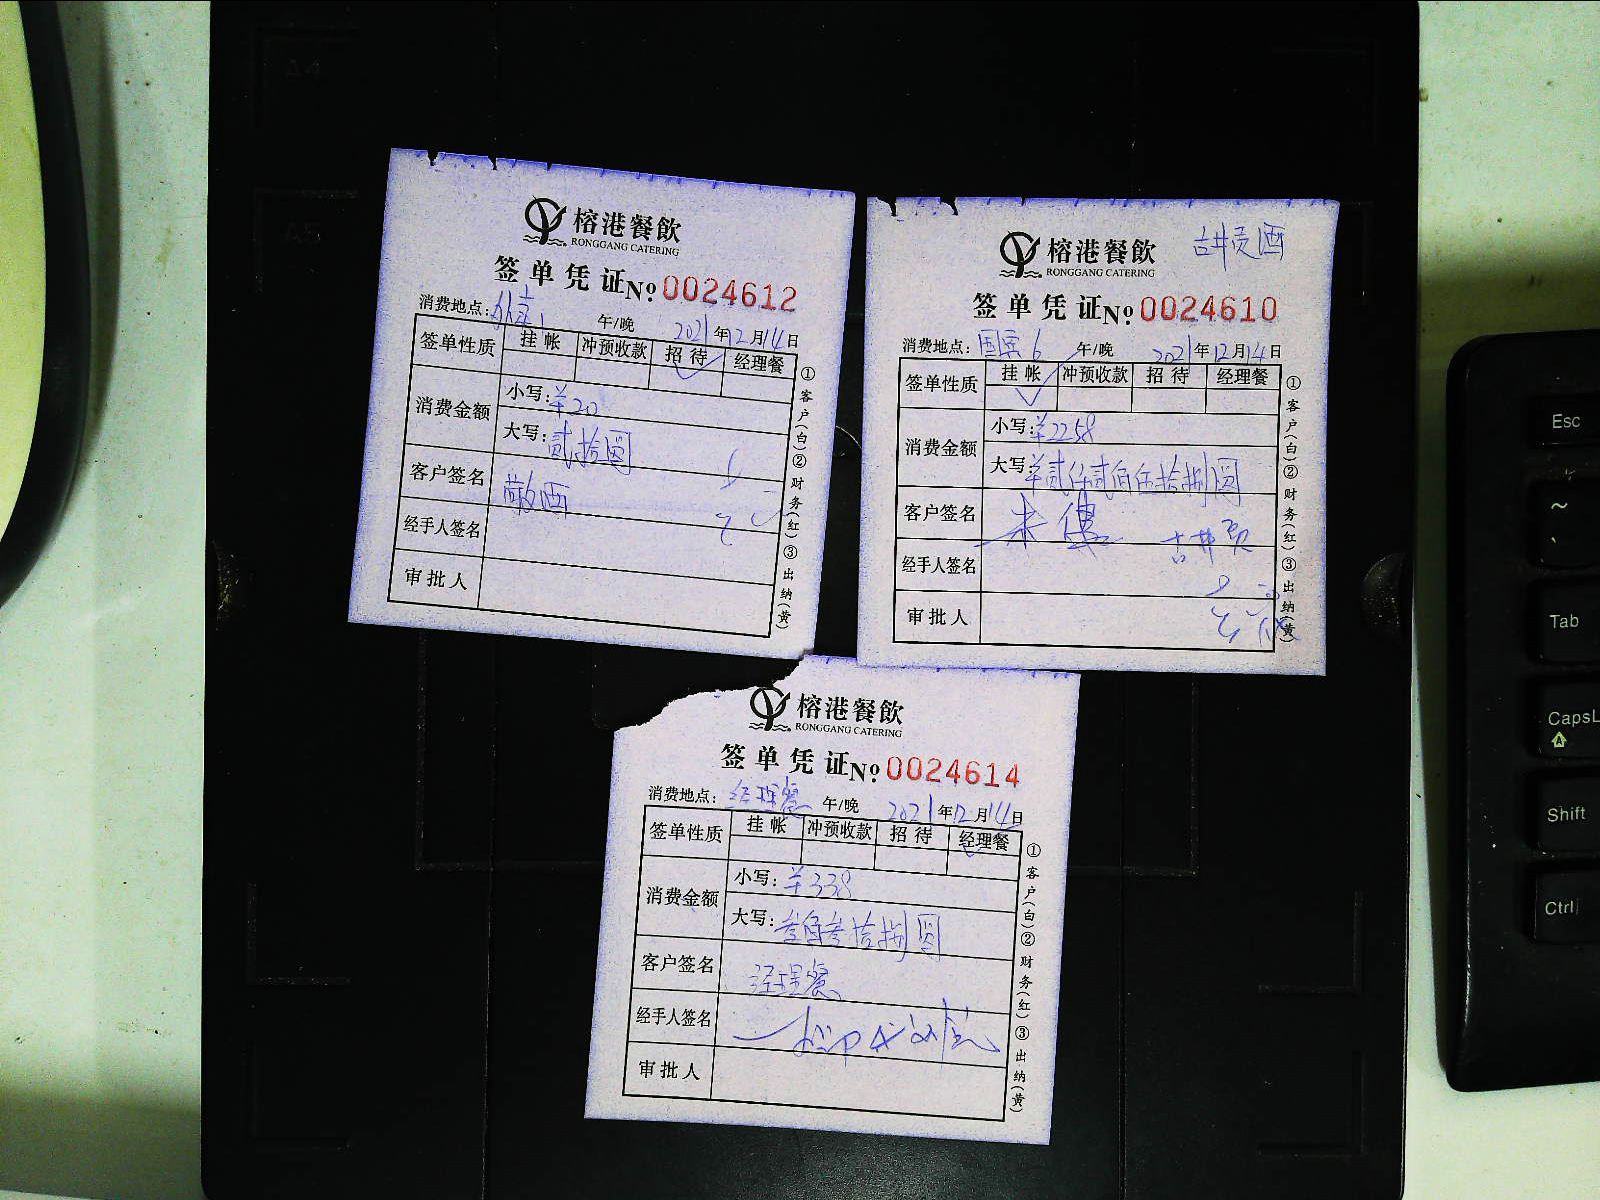 榕港餐飲
RONGGANG CATERING
签单凭证 № 0024612
消费地点: 午/晚 2021年12月14日
签单性质 挂帐 冲预收款 招待 经理餐
✓
消费金额 小写:¥20
大写:贰拾圆
客户签名 敬酒
经手人签名
审批人
①客户(白)②财务(红)③出纳(黄)
古井贡酒
榕港餐飲
RONGGANG CATERING
签单凭证 № 0024610
消费地点:国宾6 午/晚 2021年12月14日
签单性质 挂帐 冲预收款 招待 经理餐
✓
消费金额 小写:¥2258
大写:¥贰仟贰佰伍拾捌圆
客户签名 古井贡
经手人签名
审批人
①客户(白)②财务(红)③出纳(黄)
榕港餐飲
RONGGANG CATERING
签单凭证 № 0024614
消费地点:经理餐 午/晚 2021年12月14日
签单性质 挂帐 冲预收款 招待 经理餐
✓
消费金额 小写:¥338
大写:叁佰叁拾捌圆
客户签名 经理餐
经手人签名
审批人
①客户(白)②财务(红)③出纳(黄)
Esc
~
Tab
CapsL
A
Shift
Ctrl
A4
A5